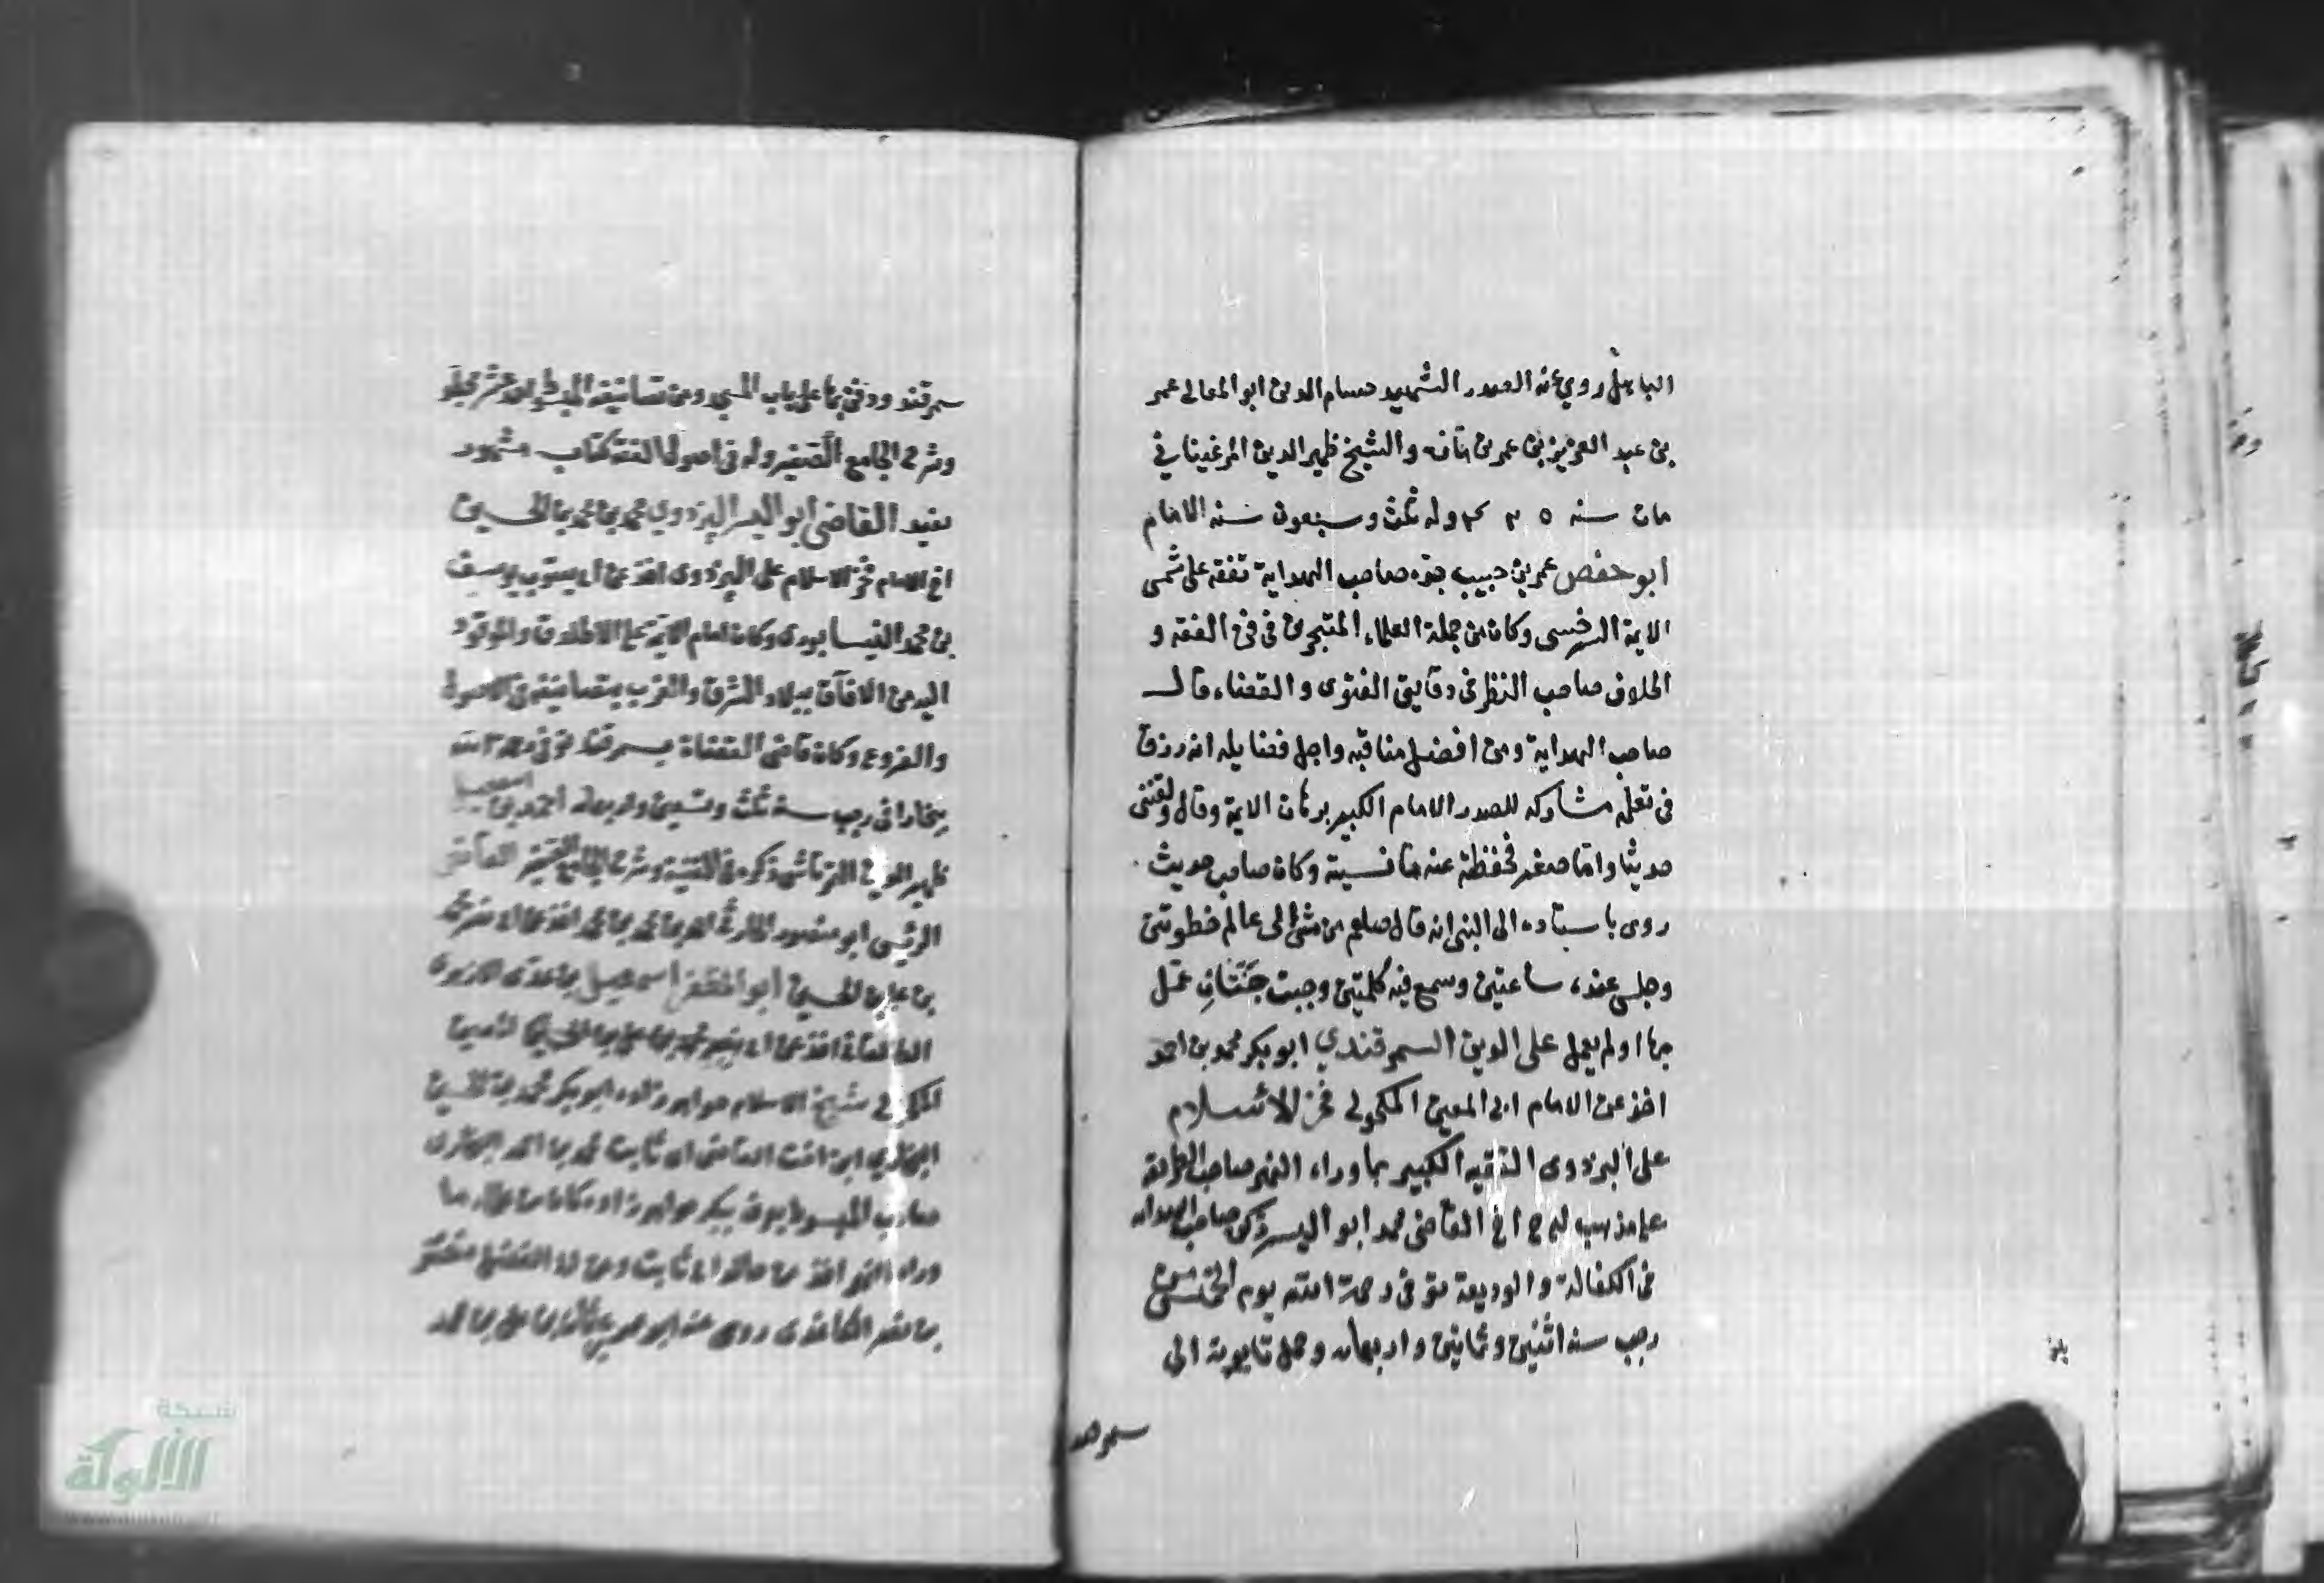 روي عنه الصدر الشهيد حسام الدين ابو المعالى عمر
بن عبد العزيز بن عمر بن مازه والشيخ ظهير الدين المرغيناني
مات سنه وله ثلث وسبعون سنه الامام
ابو حفص عمر بن حبيب جد صاحب الهداية تفقه على شمس
الايمة السرخسى وكان من جملة العلماء المتبحرين فى فن الفقه و
الخلاف صاحب النظر فى دقايق الفتوى والقضاء قال
صاحب الهداية ومن افضل مناقبه واجل فضايله انه رزق
فى تعلمه مشاركه للصدر الامام الكبير برهان الايمة وقال ولقننى
حديثا وانا صغير فحفظته عنه ما نسيته وكان صاحب حديث
روى باسناده الى النبى انه قال صلعم من مشى الى عالم خطوتين
وجلس عنده ساعتين وسمع فيه كلمتين وجبت جَنَّتَانِ عمل
بهما او لم يعمل على الدين السمرقندي ابو بكر محمد بن احمد
اخذ عن الامام ابى المعين المكحولى فخر الاسلام
على البزدوى الفقيه الكبير بما وراء النهر صاحب الطريقة
على مذهب اخ القاضى محمد ابو اليسر ذكره صاحب الهدايه
فى الكفالة والوديعة توفى رحمة الله يوم الخميس
رجب سنه اثنين وثمانين واربعمائه وحمل تابوته الى
سمرقند
سمرقند ودفن بها على باب المسجد ومن تصانيفه المبسوط احد عشر مجلدا
وشرح الجامع الصغير وله فى اصول الفقه كتاب مشهور
مفيد القاضى ابو اليسر البزدوي محمد بن محمد بن الحسين
اخ الامام فخر الاسلام على البزدوى اخذ عن ابى يعقوب يوسف
بن محمد النيسابورى وكان امام الايمة على الاطلاق والموفود
اليه من الافاق ببلاد الشرق والغرب بتصانيفه فى الاصول
والفروع وكان قاضى القضاة بسمرقند توفى رحمه الله
ببخارا فى رجب سنة ثلث وتسعين واربعمائة احمد بن اسمعيل
ظهير الدين التمرتاشى ذكره فى القنية وشرح الجامع الصغير القاضى
الرئيس ابو منصور الحارثى احمد بن محمد بن محمد اخذ عن
بن على بن الحسين ابو المظفر اسمعيل بن عدى الازهرى
الطالقانى اخذ عن محمد بن على بن الحسين
المكحولى شيخ الاسلام خواهر زاده ابو بكر محمد بن الحسين
البخاري ابن اخت القاضى ابى ثابت محمد بن احمد البخارى
صاحب المبسوط يعرف ببكر خواهر زاده كان من
وراء النهر اخذ عن خاله ابى ثابت وعن ابى الفضل منصور
بن نصر الكاغدى روى عنه ابو عمر عثمان بن على بن محمد
شبكة
الألوكة